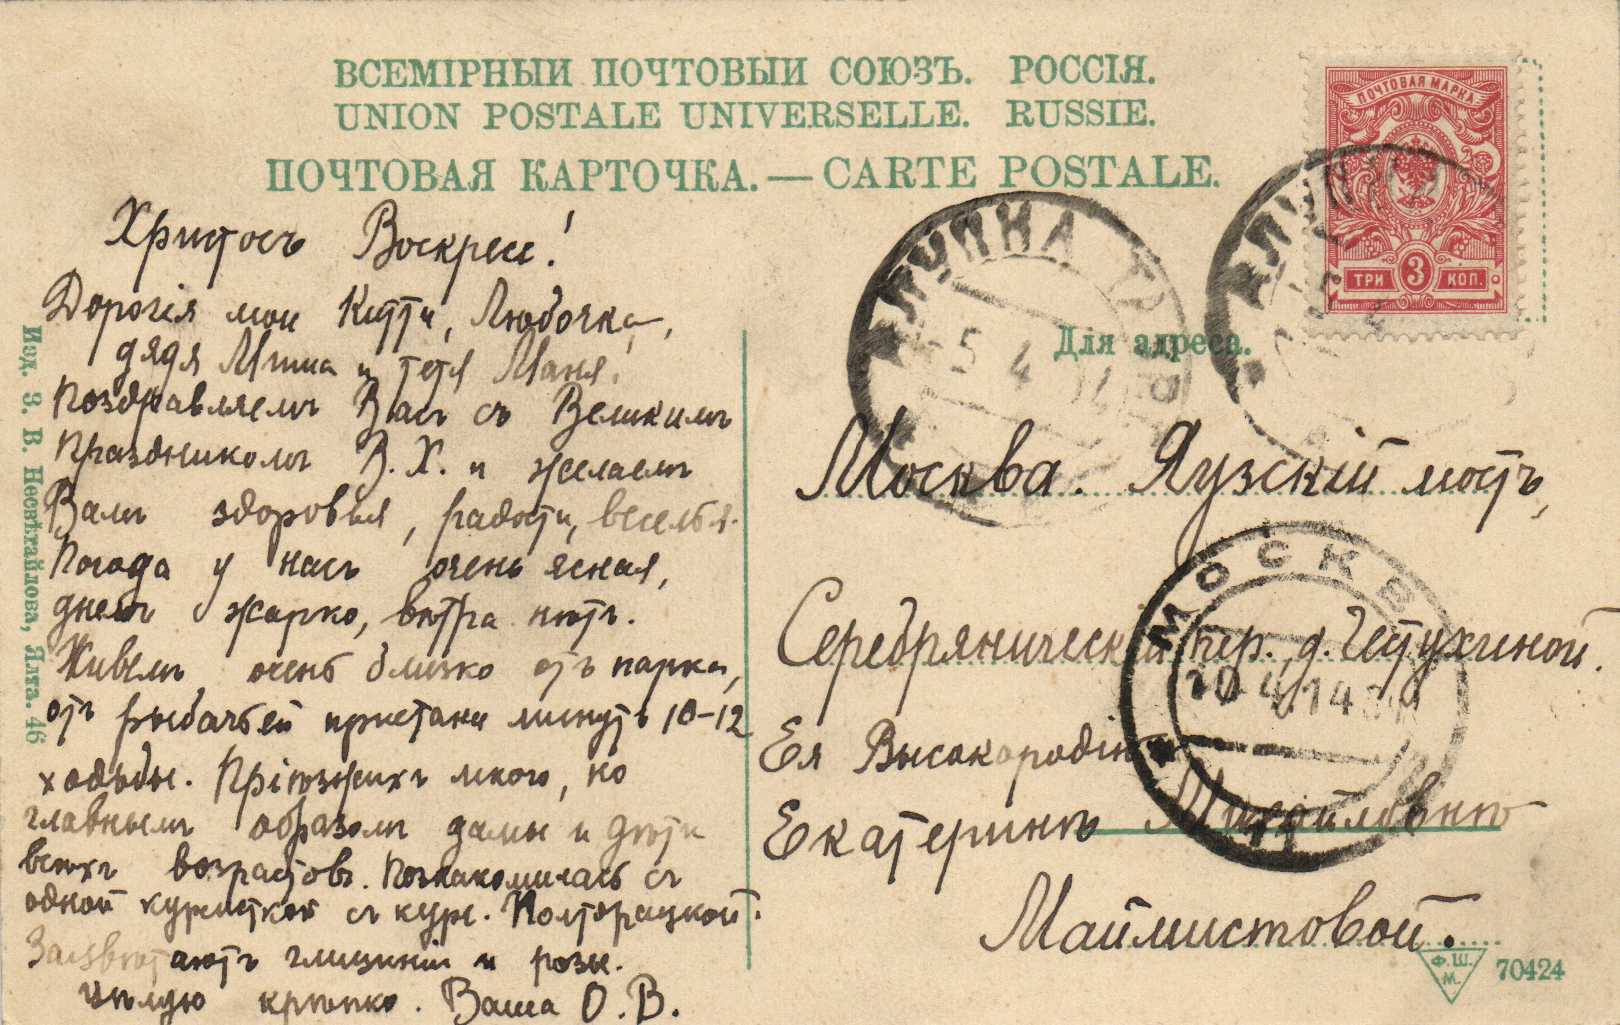 ВСЕМІРНЫЙ ПОЧТОВЫЙ СОЮЗЪ. РОССІЯ.
UNION POSTALE UNIVERSELLE. RUSSIE.
ПОЧТОВАЯ КАРТОЧКА.—CARTE POSTALE.
Христосъ Воскресе!
Дорогія мои Китти, Любочка,
дядя Миша и тетя Маня!
Поздравляемъ Васъ съ Великимъ
Праздникомъ В. Х. и желаемъ
Вамъ здоровья, радости, веселья.
Погода у насъ очень ясная,
днемъ жарко, вѣтра нѣтъ.
Живемъ очень близко отъ парка,
отъ рыбачьей пристани минутъ 10-12
ходьбы. Пріѣзжихъ много, но
главнымъ образомъ дамы и дѣти
всѣхъ возрастовъ. Познакомилась съ
одной курсисткой съ курс. Полторацкой.
Зацвѣтаютъ глициніи и розы.
Цѣлую крѣпко. Ваша О. В.
Изд. З. В. Несвѣтайлова, Ялта. 46
ПОЧТОВАЯ МАРКА
ТРИ 3 КОП.
АЛУПКА
5 4 14
АЛУПКА
Для адреса.
Москва. Яузскій мостъ,
Серебряническій пер. д.
Ея Высокородію
Екатеринѣ Михайловнѣ
Маймистовой.
МОСКВА
10 4 14
Ф.Ш.
М.
70424